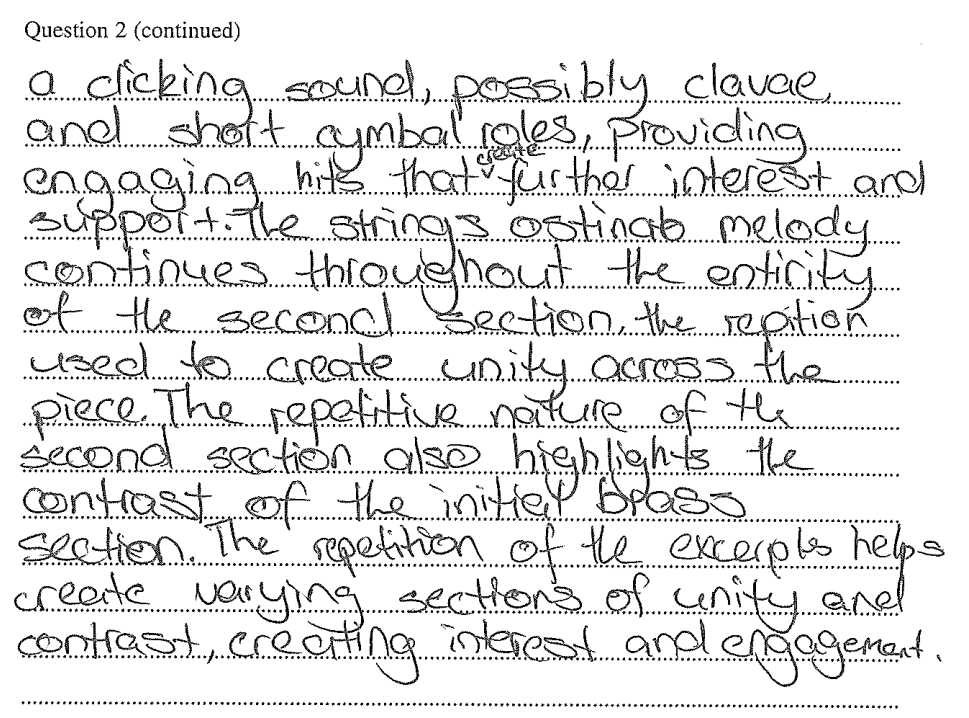 Question 2 (continued)
a clicking sound, possibly clavae,
and short cymbal roles, providing
engaging hits that create further interest and
support. The strings ostinato melody
continues throughout the entirity
of the second section, the repition
used to create unity across the
piece. The repetitive nature of the
second section also highlights the
contrast of the initial brass
section. The repetition of the excerpts helps
create varying sections of unity and
contrast, creating interest and engagement.